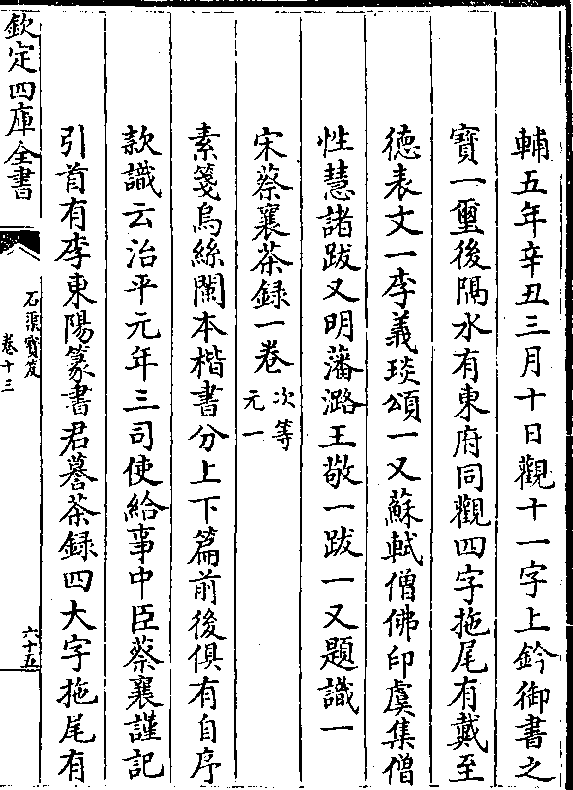 輔五年辛丑三月十日觀十一字上鈐御書之
寶一璽後隔水有東府同觀四字拖尾有戴至
德表文一李義琰頌一又蘇軾僧佛印虞集僧
性慧諸跋又明藩潞王敬一跋一又題識一
宋蔡襄茶録一卷次等
元一
素箋烏絲闌本楷書分上下篇前後俱有自序
款識云治平元年三司使給事中臣蔡襄謹記
引首有李東陽篆書君謩茶録四大字拖尾有
欽定四庫全書
石渠寶笈
卷十三
六十五